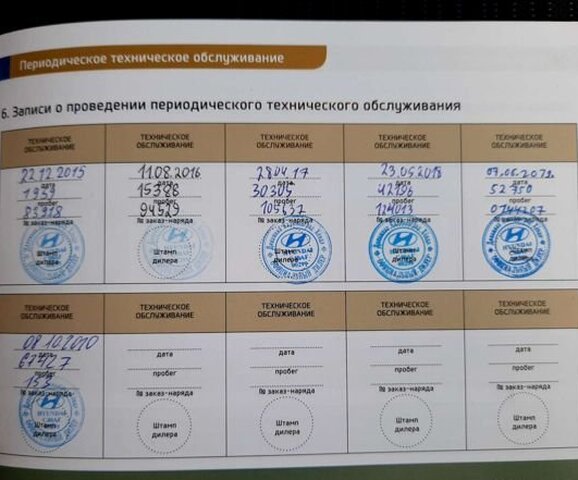 Периодическое техническое обслуживание
6. Записи о проведении периодического технического обслуживания
ТЕХНИЧЕСКОЕ ОБСЛУЖИВАНИЕ
22.12.2015
дата
1959
пробег
83918
№ заказ-наряда
Штамп
дилера
ТЕХНИЧЕСКОЕ ОБСЛУЖИВАНИЕ
11.08.2016
дата
15388
пробег
94529
№ заказ-наряда
Штамп
дилера
ТЕХНИЧЕСКОЕ ОБСЛУЖИВАНИЕ
28.04.17
дата
30305
пробег
105637
№ заказ-наряда
HYUNDAI
ОФИЦИАЛЬНЫЙ ДИЛЕР
ТЕХНИЧЕСКОЕ ОБСЛУЖИВАНИЕ
23.05.2018
дата
пробег
№ заказ-наряда
Штамп
дилера
ОФИЦИАЛЬНЫЙ ДИЛЕР
ТЕХНИЧЕСКОЕ ОБСЛУЖИВАНИЕ
дата
52750
пробег
№ заказ-наряда
HYUNDAI
Штамп
дилера
ОФИЦИАЛЬНЫЙ ДИЛЕР
ТЕХНИЧЕСКОЕ ОБСЛУЖИВАНИЕ
дата
67427
пробег
153
№ заказ-наряда
HYUNDAI
Штамп
дилера
ТЕХНИЧЕСКОЕ ОБСЛУЖИВАНИЕ
дата
пробег
№ заказ-наряда
Штамп
дилера
ТЕХНИЧЕСКОЕ ОБСЛУЖИВАНИЕ
дата
пробег
№ заказ-наряда
Штамп
дилера
ТЕХНИЧЕСКОЕ ОБСЛУЖИВАНИЕ
дата
пробег
№ заказ-наряда
Штамп
дилера
ТЕХНИЧЕСКОЕ ОБСЛУЖИВАНИЕ
дата
пробег
№ заказ-наряда
Штамп
дилера